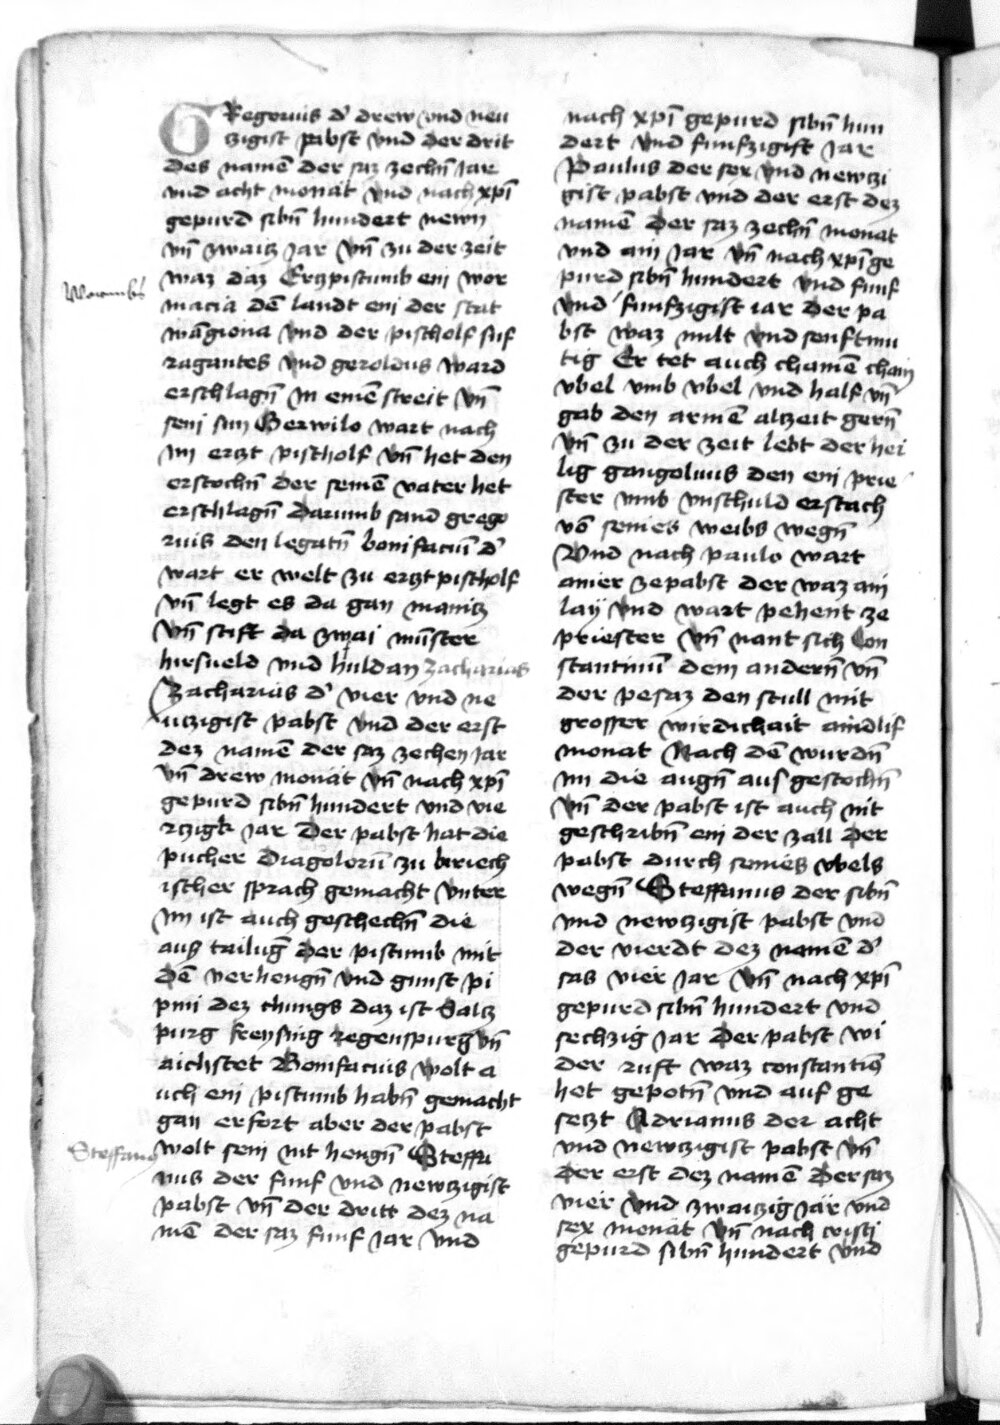 GRegorius d' drew vnd neu
zigist pabst vnd der drit
des namē der saz zechn̄ Jar
vnd acht monat vnd nach xp̄i
gepurd sibn̄ hundert newn
vn̄ zwaitz Jar vn̄ zu der zeit
waz daz Erczpistumb ein wor
macia dē landt ein der stat
wāgiona vnd der pischolf suf
ragantes vnd geroldus ward
erschlagn̄ In einē streit vn̄
sein sun Gerwilo wart nach
im erczt pischolf vn̄ het den
erstochn̄ der seinē vater het
erschlagn̄ Darumb sand grego
rius den legatn̄ bonifaciū d'
wart er welt zu erczt pischolf
vn̄ legt es da gan maintz
vn̄ stift da zwai mūster
hirsueld vnd huldan Zacharias
Zacharias d' vier vnd ne
uczigist pabst vnd der erst
dez namē der saz zechen Jar
vn̄ drew monat vn̄ nach xp̄i
gepurd sibn̄ hundert vnd vie
rczigk Jar Der pabst hat die
pucher Diagolorū zu kriech
ischer sprach gemacht vnter
im ist auch geschechn̄ die
aus tailūg Der pistumb mit
dē verhengn̄ vnd gunst pi
pini dez chunigs daz ist Salcz
purg freysing regenspurg vn̄
aichstet Bonifacius wolt a
uch ein pistumb habn̄ gemacht
gan erfort aber der pabst
wolt sein nit hengn̄ Steffa
nus der funf vnd newczigist
pabst vn̄ der dritt dez na
mē der saz funf Jar vnd
Steffanus
nach xp̄i gepurd sibn̄ hun
dert vnd funfzigist Jar
Paulus der sex vnd newczi
gist pabst vnd der erst dez
namē Der saz zechn̄ monat
vnd ain Jar vn̄ nach xp̄i ge
purd sibn̄ hundert vnd funf
vnd funfzigist iar Der pa
bst waz milt vnd senftmu
tig Er tet auch chainē chain
vbel vmb vbel vnd half vn̄
gab den armē alczeit gern̄
vn̄ zu der zeit lebt der hei
lig gangolnus den ein prie
ster vmb vnschuld erstach
vō seines weibs wegn̄
Vnd nach paulo wart
ainer ze pabst der waz ain
lay vnd wart pehent ze
priester vn̄ nant sich Con
stantinū dem andern̄ vn̄
der pesaz den stull mit
grosser wirdichait aindlif
monat Nach dē wurdn̄
im die augn̄ aus gestochn̄
vn̄ der pabst ist auch nit
geschribn̄ ein der zall Der
pabst durch seines vbels
wegn̄ Steffanus der sibn̄
vnd newczigist pabst vnd
der vierdt dez namē d'
sas vier Jar vn̄ nach xp̄i
gepurd sibn̄ hundert vnd
sechzig Jar Der pabst wi
der ruft waz constantinꝰ
het gepotn̄ vnd auf ge
seczt Adrianus der acht
vnd newczigist pabst vn̄
Der erst dez namē Der saz
vier vnd zwaitzig Jar vnd
sex monat vn̄ nach cristi
gepurd sibn̄ hundert vnd